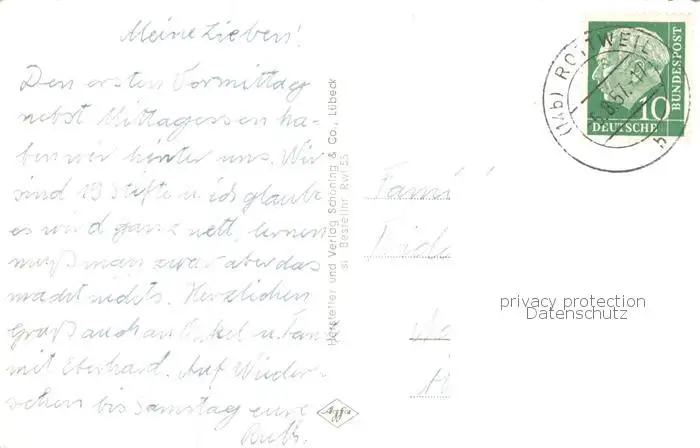 Meine Lieben!
Den ersten Vormittag
nebst Mittagessen ha-
ben wir hinter uns. Wir
sind 19 Stifte u. ich glaube
es wird ganz nett, lernen
muß man zwar aber das
macht nichts. Herzlichen
Gruß auch an Onkel u. Tante
mit Eberhard. Auf Wieder-
sehen bis Samstag eure
Ruth.
Hersteller und Verlag Schöning & Co., Lübeck
si Bestellnr. Rwl 55
(14b) ROTTWEIL
10
DEUTSCHE
BUNDESPOST
Fami
privacy protection
Datenschutz